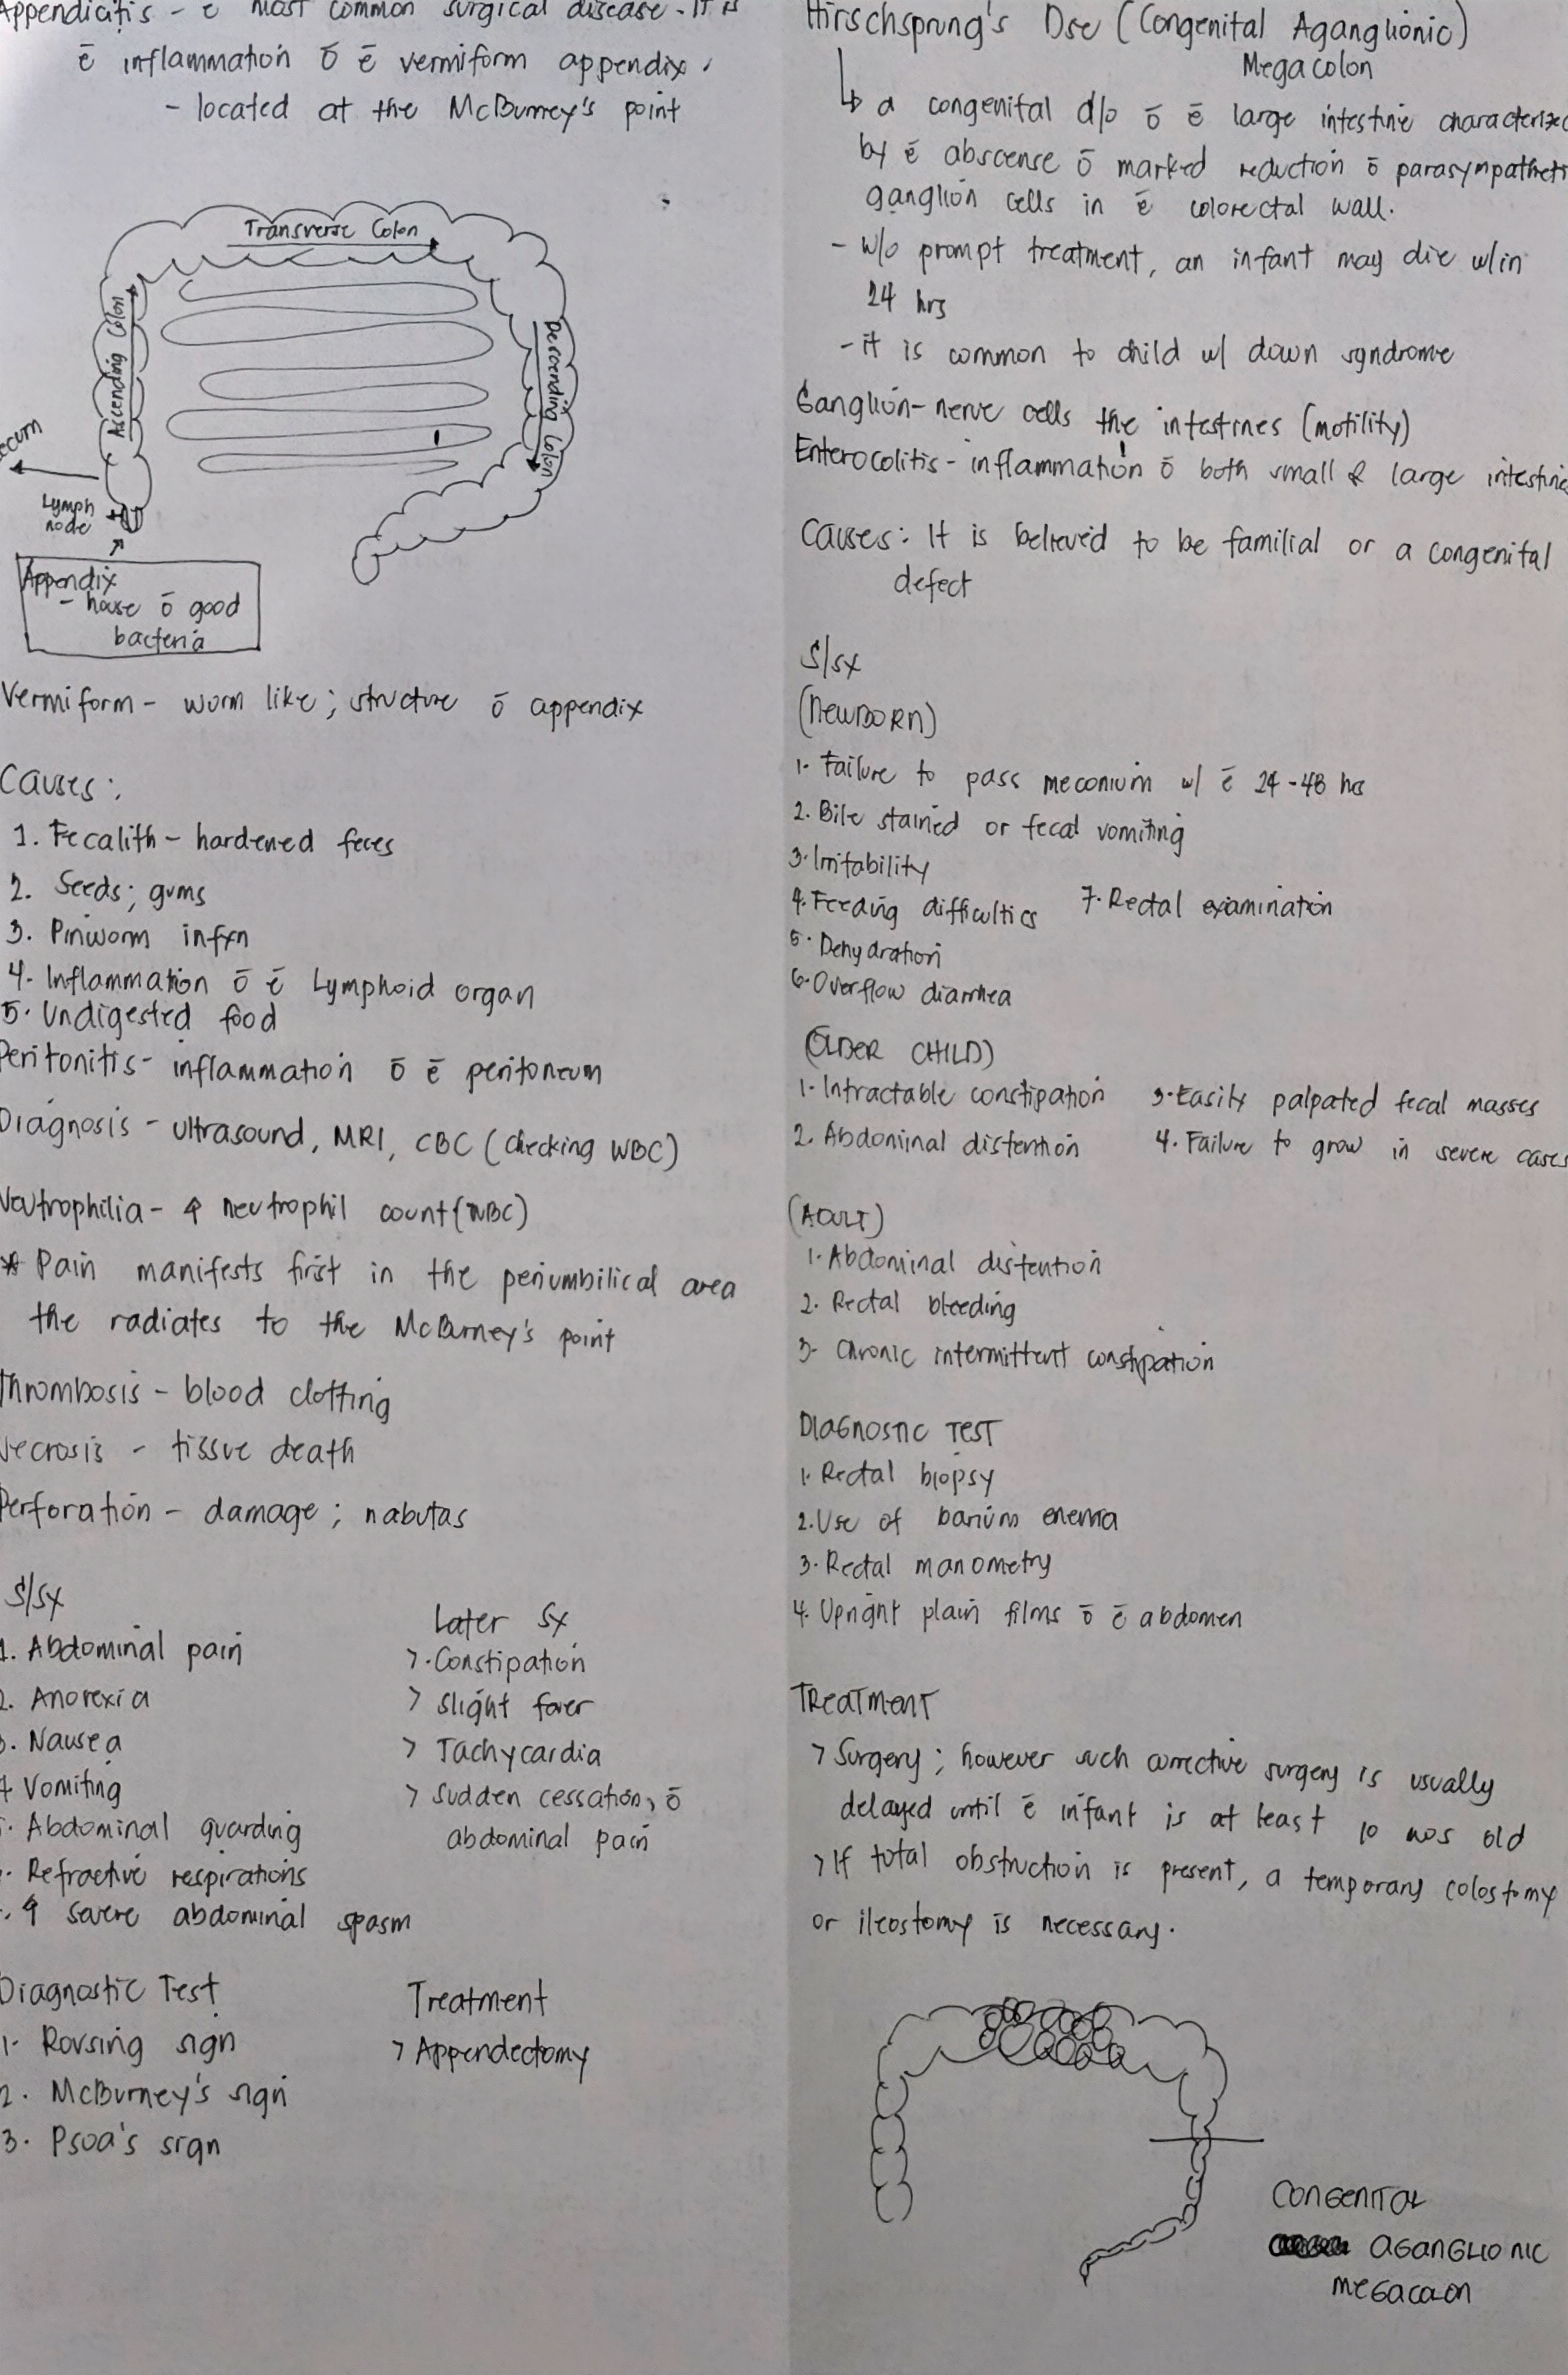 Appendicitis - ē most common surgical disease. It is
ē inflammation ō ē vermiform appendix.
- located at the McBurney's point
Transverse Colon
Ascending Colon
Descending Colon
Lymph
node
Appendix
- house ō good
bacteria
Vermiform - worm like; structure ō appendix
Causes:
1. Fecalith - hardened feces
2. Seeds; gums
3. Pinworm infxn
4. Inflammation ō ē Lymphoid organ
5. Undigested food
Peritonitis - inflammation ō ē peritoneum
Diagnosis - ultrasound, MRI, CBC (checking WBC)
Neutrophilia - ↑ neutrophil count (WBC)
* Pain manifests first in the periumbilical area
the radiates to the McBurney's point
Thrombosis - blood clotting
Necrosis - tissue death
Perforation - damage; nabutas
S/sx
1. Abdominal pain
2. Anorexia
3. Nausea
4 Vomiting
. Abdominal guarding
. Refractive respirations
. ↑ severe abdominal spasm
Later Sx
> Constipation
> slight fever
> Tachycardia
> sudden cessation ō
abdominal pain
Diagnostic Test
1. Rovsing sign
2. McBurney's sign
3. Psoa's sign
Treatment
> Appendectomy
Hirschsprung's Dse (Congenital Aganglionic)
Megacolon
↳ a congenital d/o ō ē large intestine characterized
by ē abscense ō marked reduction ō parasympathetic
ganglion cells in ē colorectal wall.
- w/o prompt treatment, an infant may die w/in
24 hrs
- it is common to child w/ down syndrome
Ganglion - nerve cells the intestines (motility)
Enterocolitis - inflammation ō both small & large intestine
Causes: It is believed to be familial or a congenital
defect
S/sx
(NEWBORN)
1. Failure to pass meconium w/ ē 24-48 hrs
2. Bile stained or fecal vomiting
3. Irritability
4. Feeding difficulties 7. Rectal examination
5. Dehydration
6. Overflow diarrhea
(OLDER CHILD)
1. Intractable constipation 3. Easily palpated fecal masses
2. Abdominal distention 4. Failure to grow in severe cases
(ADULT)
1. Abdominal distention
2. Rectal bleeding
3. Chronic intermittent constipation
DIAGNOSTIC TEST
1. Rectal biopsy
2. Use of barium enema
3. Rectal manometry
4. Upright plain films ō ē abdomen
TREATMENT
> Surgery; however such corrective surgery is usually
delayed until ē infant is at least 10 mos old
> If total obstruction is present, a temporary colostomy
or ileostomy is necessary.
CONGENITAL
AGANGLIONIC
MEGACOLON